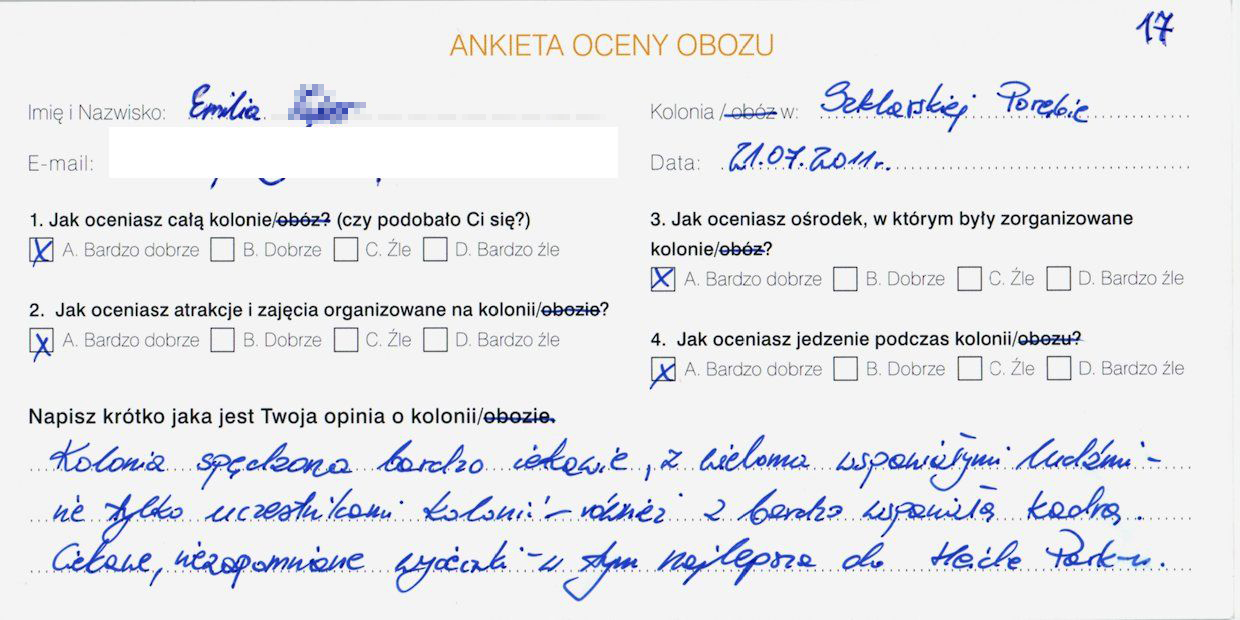 17
ANKIETA OCENY OBOZU
Imię i Nazwisko: Emilia
Kolonia/obóz w: Szklarskiej Porębie
E-mail:
Data: 21.07.2011r.
1. Jak oceniasz całą kolonie/obóz? (czy podobało Ci się?)
X A. Bardzo dobrze B. Dobrze C. Źle D. Bardzo źle
2. Jak oceniasz atrakcje i zajęcia organizowane na kolonii/obozie?
X A. Bardzo dobrze B. Dobrze C. Źle D. Bardzo źle
3. Jak oceniasz ośrodek, w którym były zorganizowane
kolonie/obóz?
X A. Bardzo dobrze B. Dobrze C. Źle D. Bardzo źle
4. Jak oceniasz jedzenie podczas kolonii/obozu?
X A. Bardzo dobrze B. Dobrze C. Źle D. Bardzo źle
Napisz krótko jaka jest Twoja opinia o kolonii/obozie.
Kolonia spędzona bardzo ciekawie, z wieloma wspaniałymi ludźmi -
nie tylko uczestnikami kolonii - również z bardzo wspaniałą kadrą.
Ciekawe, niezapomniane wycieczki - w tym najlepsza do Heide Park-u.